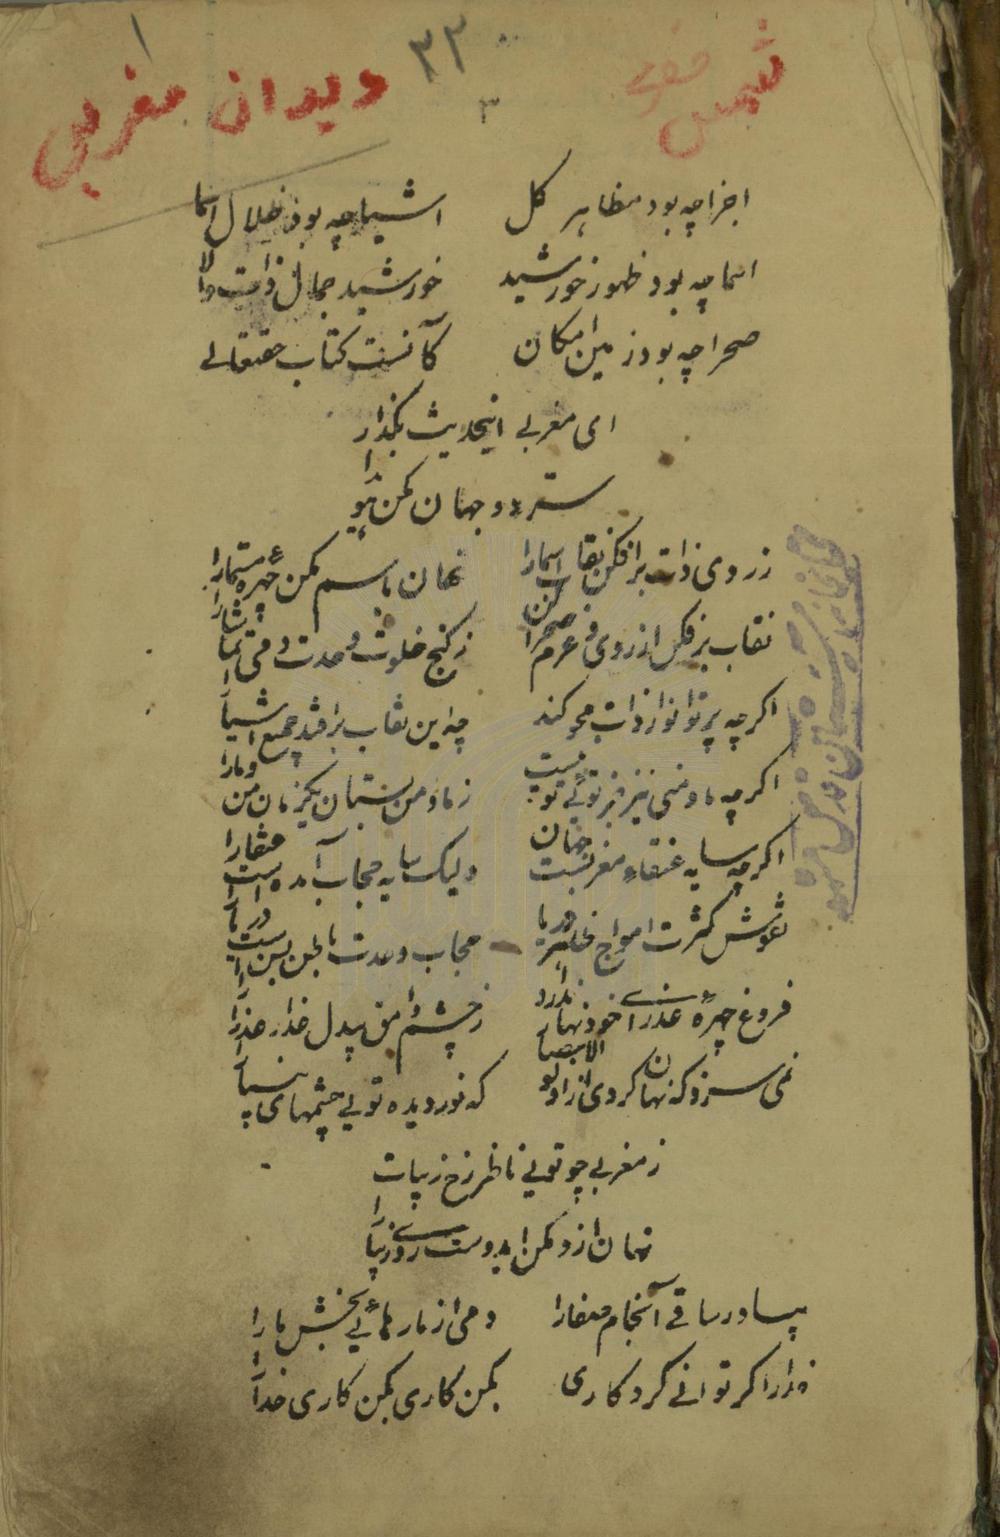 شمس مغربی
۳۳
دیوان مغربی
۱
۳
اجزا چه بود مظاهر کل اشیا چه بود ظلال اسما
اسما چه بود ظهور خورشید خورشید جمال ذات والا
صحرا چه بود زمین امکان کآنست کتاب حقتعالی
ای مغربی اینحدیث بگذار
سر دو جهان مکن هویدا
ز روی ذات برافکن نقاب اسما را نهان باسم مکن چهرهٔ مسما را
نقاب برفکن از روی و عزم صحرا کن ز کنج خلوت وحدت دمی تماشا را
اگرچه پرتو انوار ذات محو کند چه این نقاب برافتد جمیع اشیا را
اگرچه ما و منی نیز غیر توئی تو نیست ز ما و من بستان یکزمان من و ما را
اگرچه سایه عنقاء مغربست جهان ولیک سایه حجاب آمده است عنقا را
نقوش کثرت امواج ظاهر دریا حجاب وحدت باطن بس است دریا را
فروغ چهرهٔ عذرا خود نهان ندارد ز چشم وامق بیدل عذار عذرا را
نمی سزد که نهان کردی از اولو الابصار که نور دیده توئی چشمهای بینا را
ز مغربی چو توئی ناظر رخ زیبات
نهان ازو مکن ایدوست روی زیبا را
بیا در ساقی آنجام مصفا را دمی از ما رهائی بخش ما را
خدا را گر توانی کرد کاری بکن کاری بکن کاری خدا را